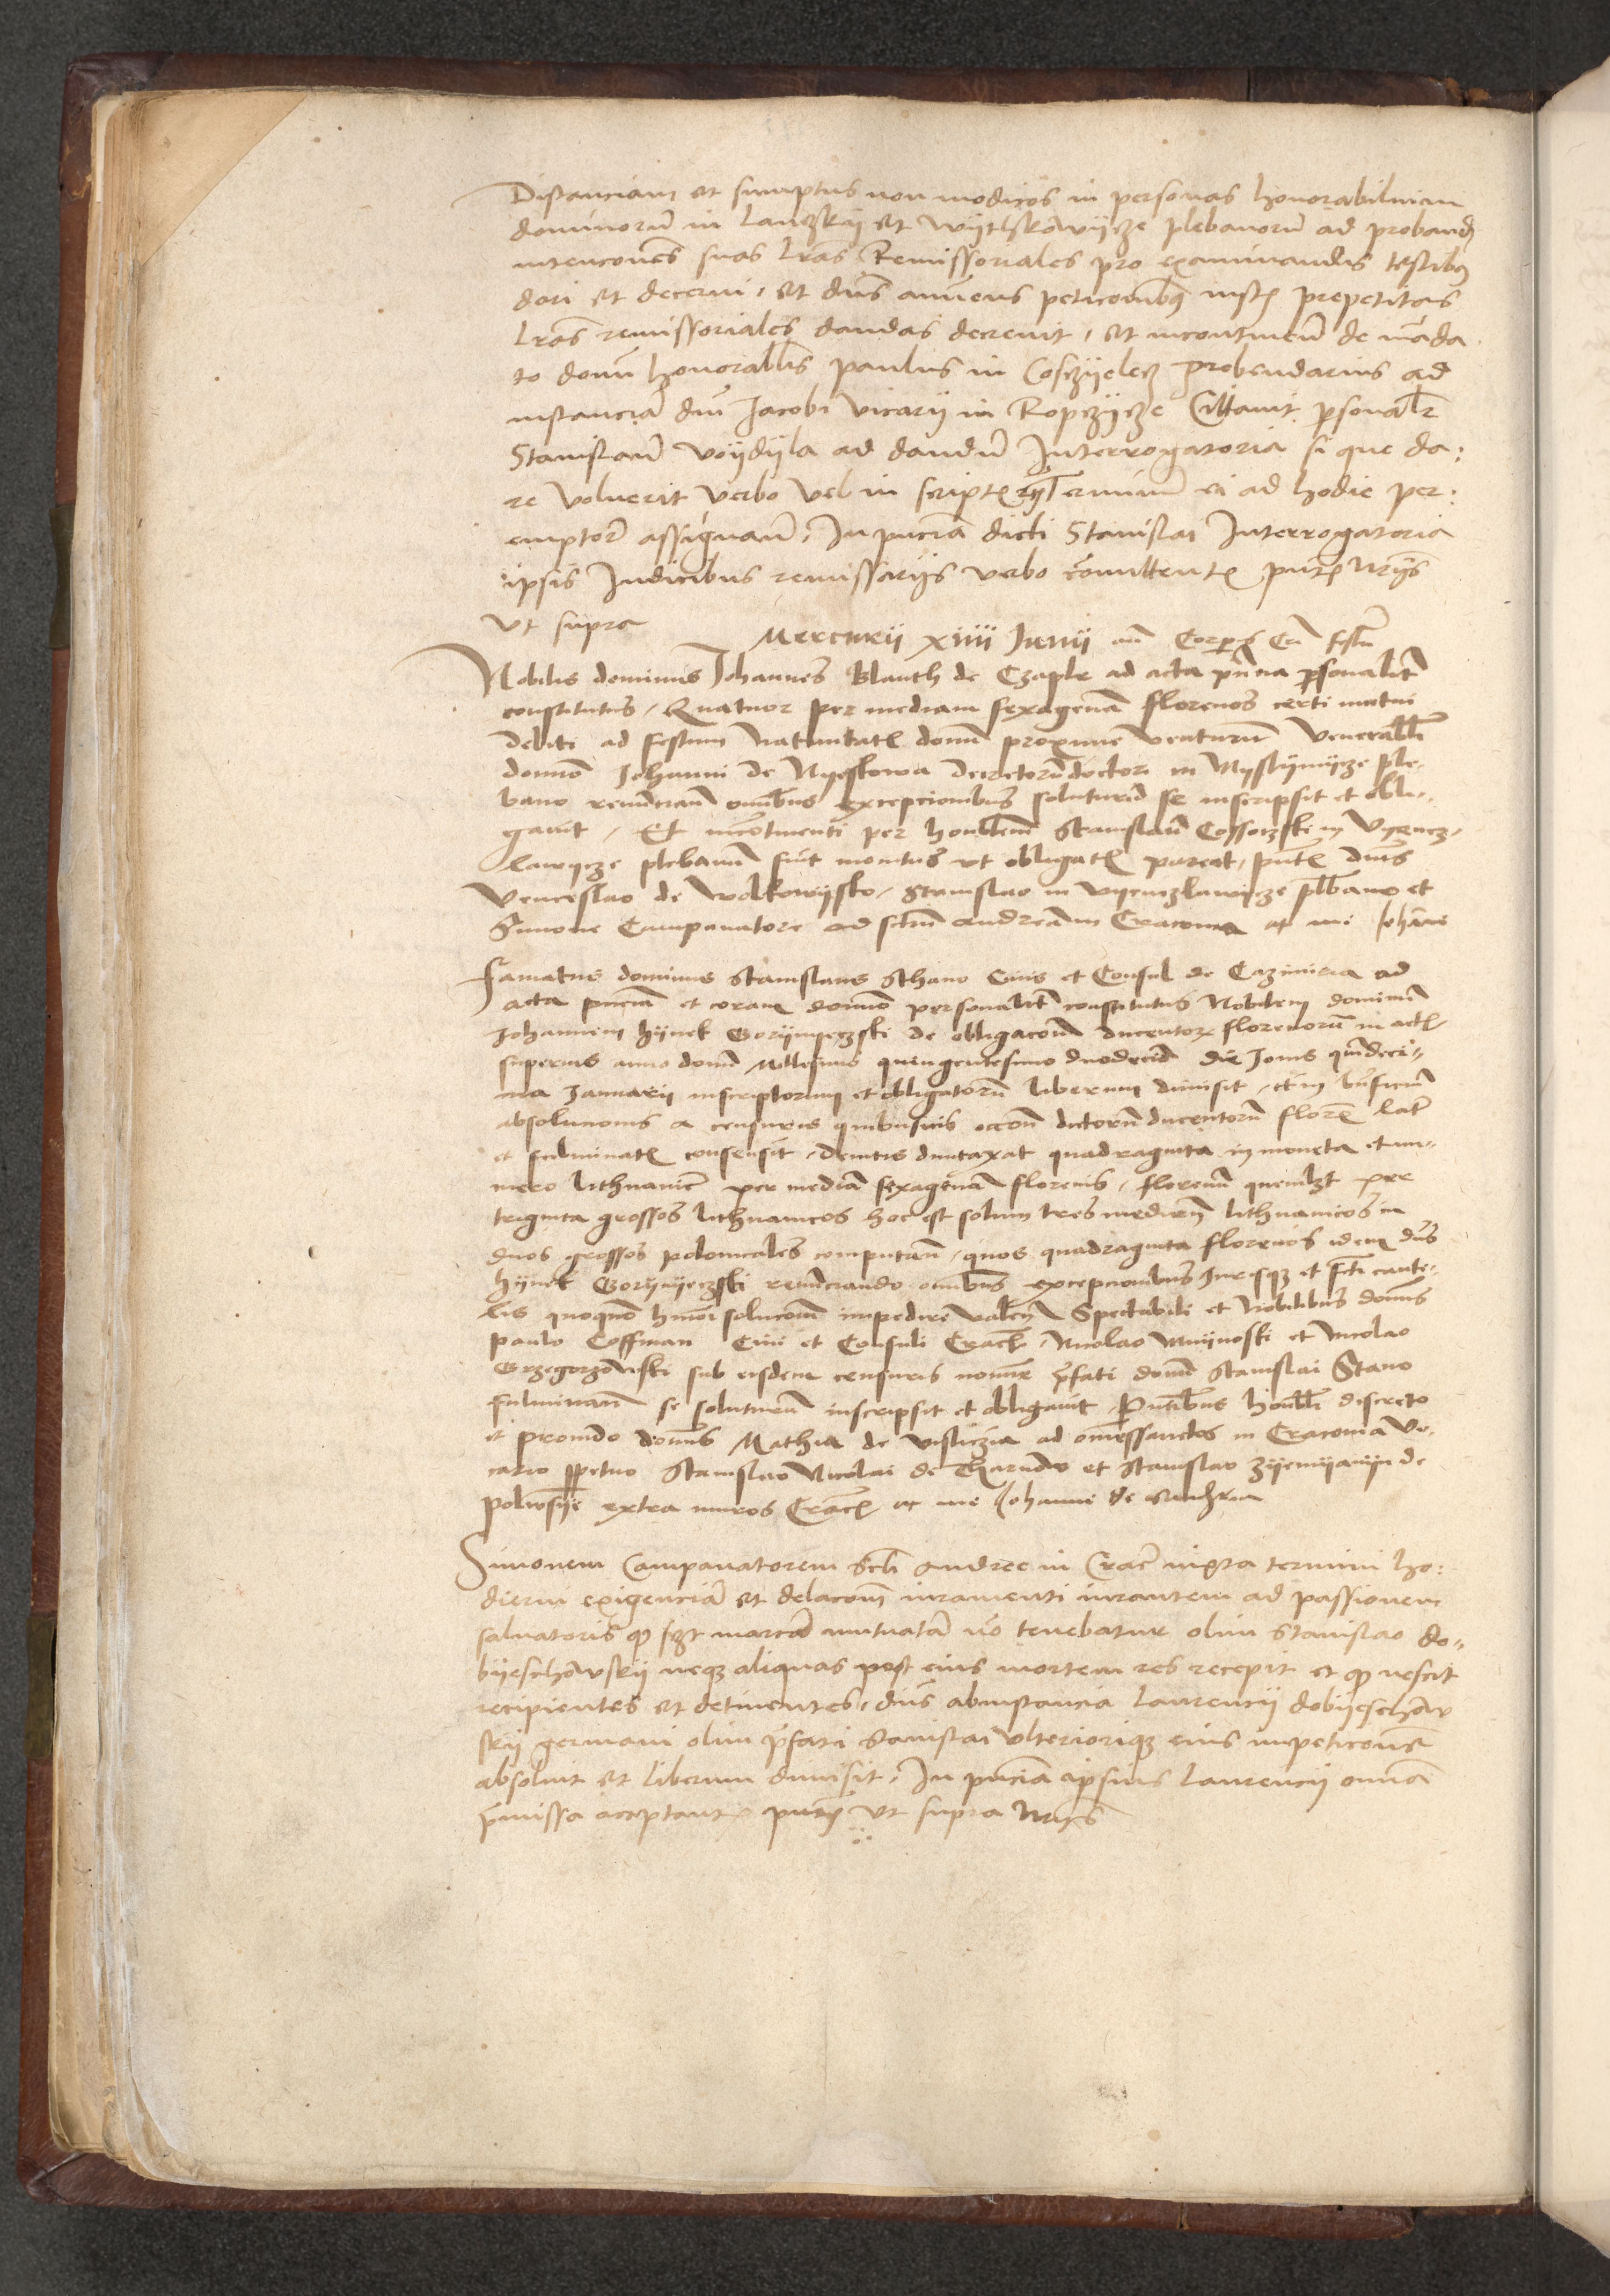 Distanciam et sumptus non modicos in personas honorabilium
dominorum in Lanczkij et Wijthkowijcze plebanorum ad proband
intencones suas lras Remissoriales pro examinandis testibus
dari et decerni, et dns annuens peticonibus iustis prepetitas
Lras remissoriales dandas decrevit, et incontinenti de manda
to domini honorabilis Paulus in Cosczyelecz Prebendarius ad
instanciam dni Jacobi vicarij in Ropczijcze Cittavit personaliter
Stanislaum Voijdijla ad dandum Interrogatoria si que da:
re voluerit verbo vel in scriptis Terminum ei ad hodie per:
emptorie assignavit, In pncia dicti Stanislai Interrogatoria
ipsis Iudicibus remissarijs verbo committentis pntibus
ut supra
Mercurii xiiii Junii an Corporis Cri festum
Nobilis dominus Johannes Blauth de Czaple ad acta pnna personaliter
constitutus, Quatuor per mediam sexagenam florenos certi mutui
debiti ad festum Nativitatis domini proxime venturum Venerabili
domino Johanni de Nyeskowa decretorum doctori in Myslymijcze ple-
bano renuncians omnibus excepcionibus soluturum se inscripsit et obli-
gavit, Et incontinenti per honorabilem Stanislaum Cossoczski in Vyencz-
lawijcze plebanum fuit monitus ut obligatis pareat, pntibus dnis
Venceslao de Wolkowijsko, Stanislao in Vyenczlawijcze plebano et
Simone Campanatore ad sctum Andream Cracovia et me Johanne
Famatus dominus Stanislaus Sthano Civis et Consul de Cazimiria ad
acta pncia et coram domino personaliter constitutus Nobilem dominum
Johannem Hynek Gorijnyeczski de obligacione ducentorum florenorum in actis
superius anno domini Millesimo quingentesimo duodecimo die Jovis quindeci-
ma Januarii inscriptorum et obligatorum liberum dimisit, etin benficium
absolucionis a censuris quibusvis occone dictorum ducentorum floren lat
et fulminatis consensit, demtis dumtaxat quadraginta in moneta et nu-
mero lithuanic per mediam sexagenam florenis, florenum quemlibet per
triginta grossos lithuanicos hoc est solum tres medium lithuanicos in
duos grossos polonicales computans, quos quadraginta florenos idem dns
Hijnek Gorijnyeczski renunciando omnibus excepcionibus Jurisque et fcti caute-
lis quoquomodo hmoi solucionem impedire valen Spectabili et Nobilibus dominis
Paulo Coffman Civi et Consuli Crac, Nicolao Mnijnoski et Nicolao
Grzegorzowski sub eisdem censuris nomine prefati domini Stanislai Stano
fulminatis se soluturum inscripsit et obligavit, Pntibus honorabili discreto
et provido dominis Mathia de Visliczia ad omnes sanctos in Cracovia Vi-
cario perpetuo Stanislao Nicolai de Tharnow et Stanislao Zijemijanijn de
Polwsije extra muros Crac et me Johanne de
Simonem Campanatorem scti Andree in Crac iuxta termini ho:
dierni exigenciam et delacom iuramenti iurantem ad passionem
salvatoris quod sibi marcam mutuatam non tenebatur olim Stanislao do-
bijeschowskij neque aliquas post eius mortem res recepit et quod nescit
recipientes et detinentes, dns abinstancia Laurencij dobijeschow
skij germani olim prefati Stanislai ulteriorique eius impeticone
absolvit et liberum dimisit, In pncia ipsius Laurencij omnia
premissa acceptantis pntibus ut supra